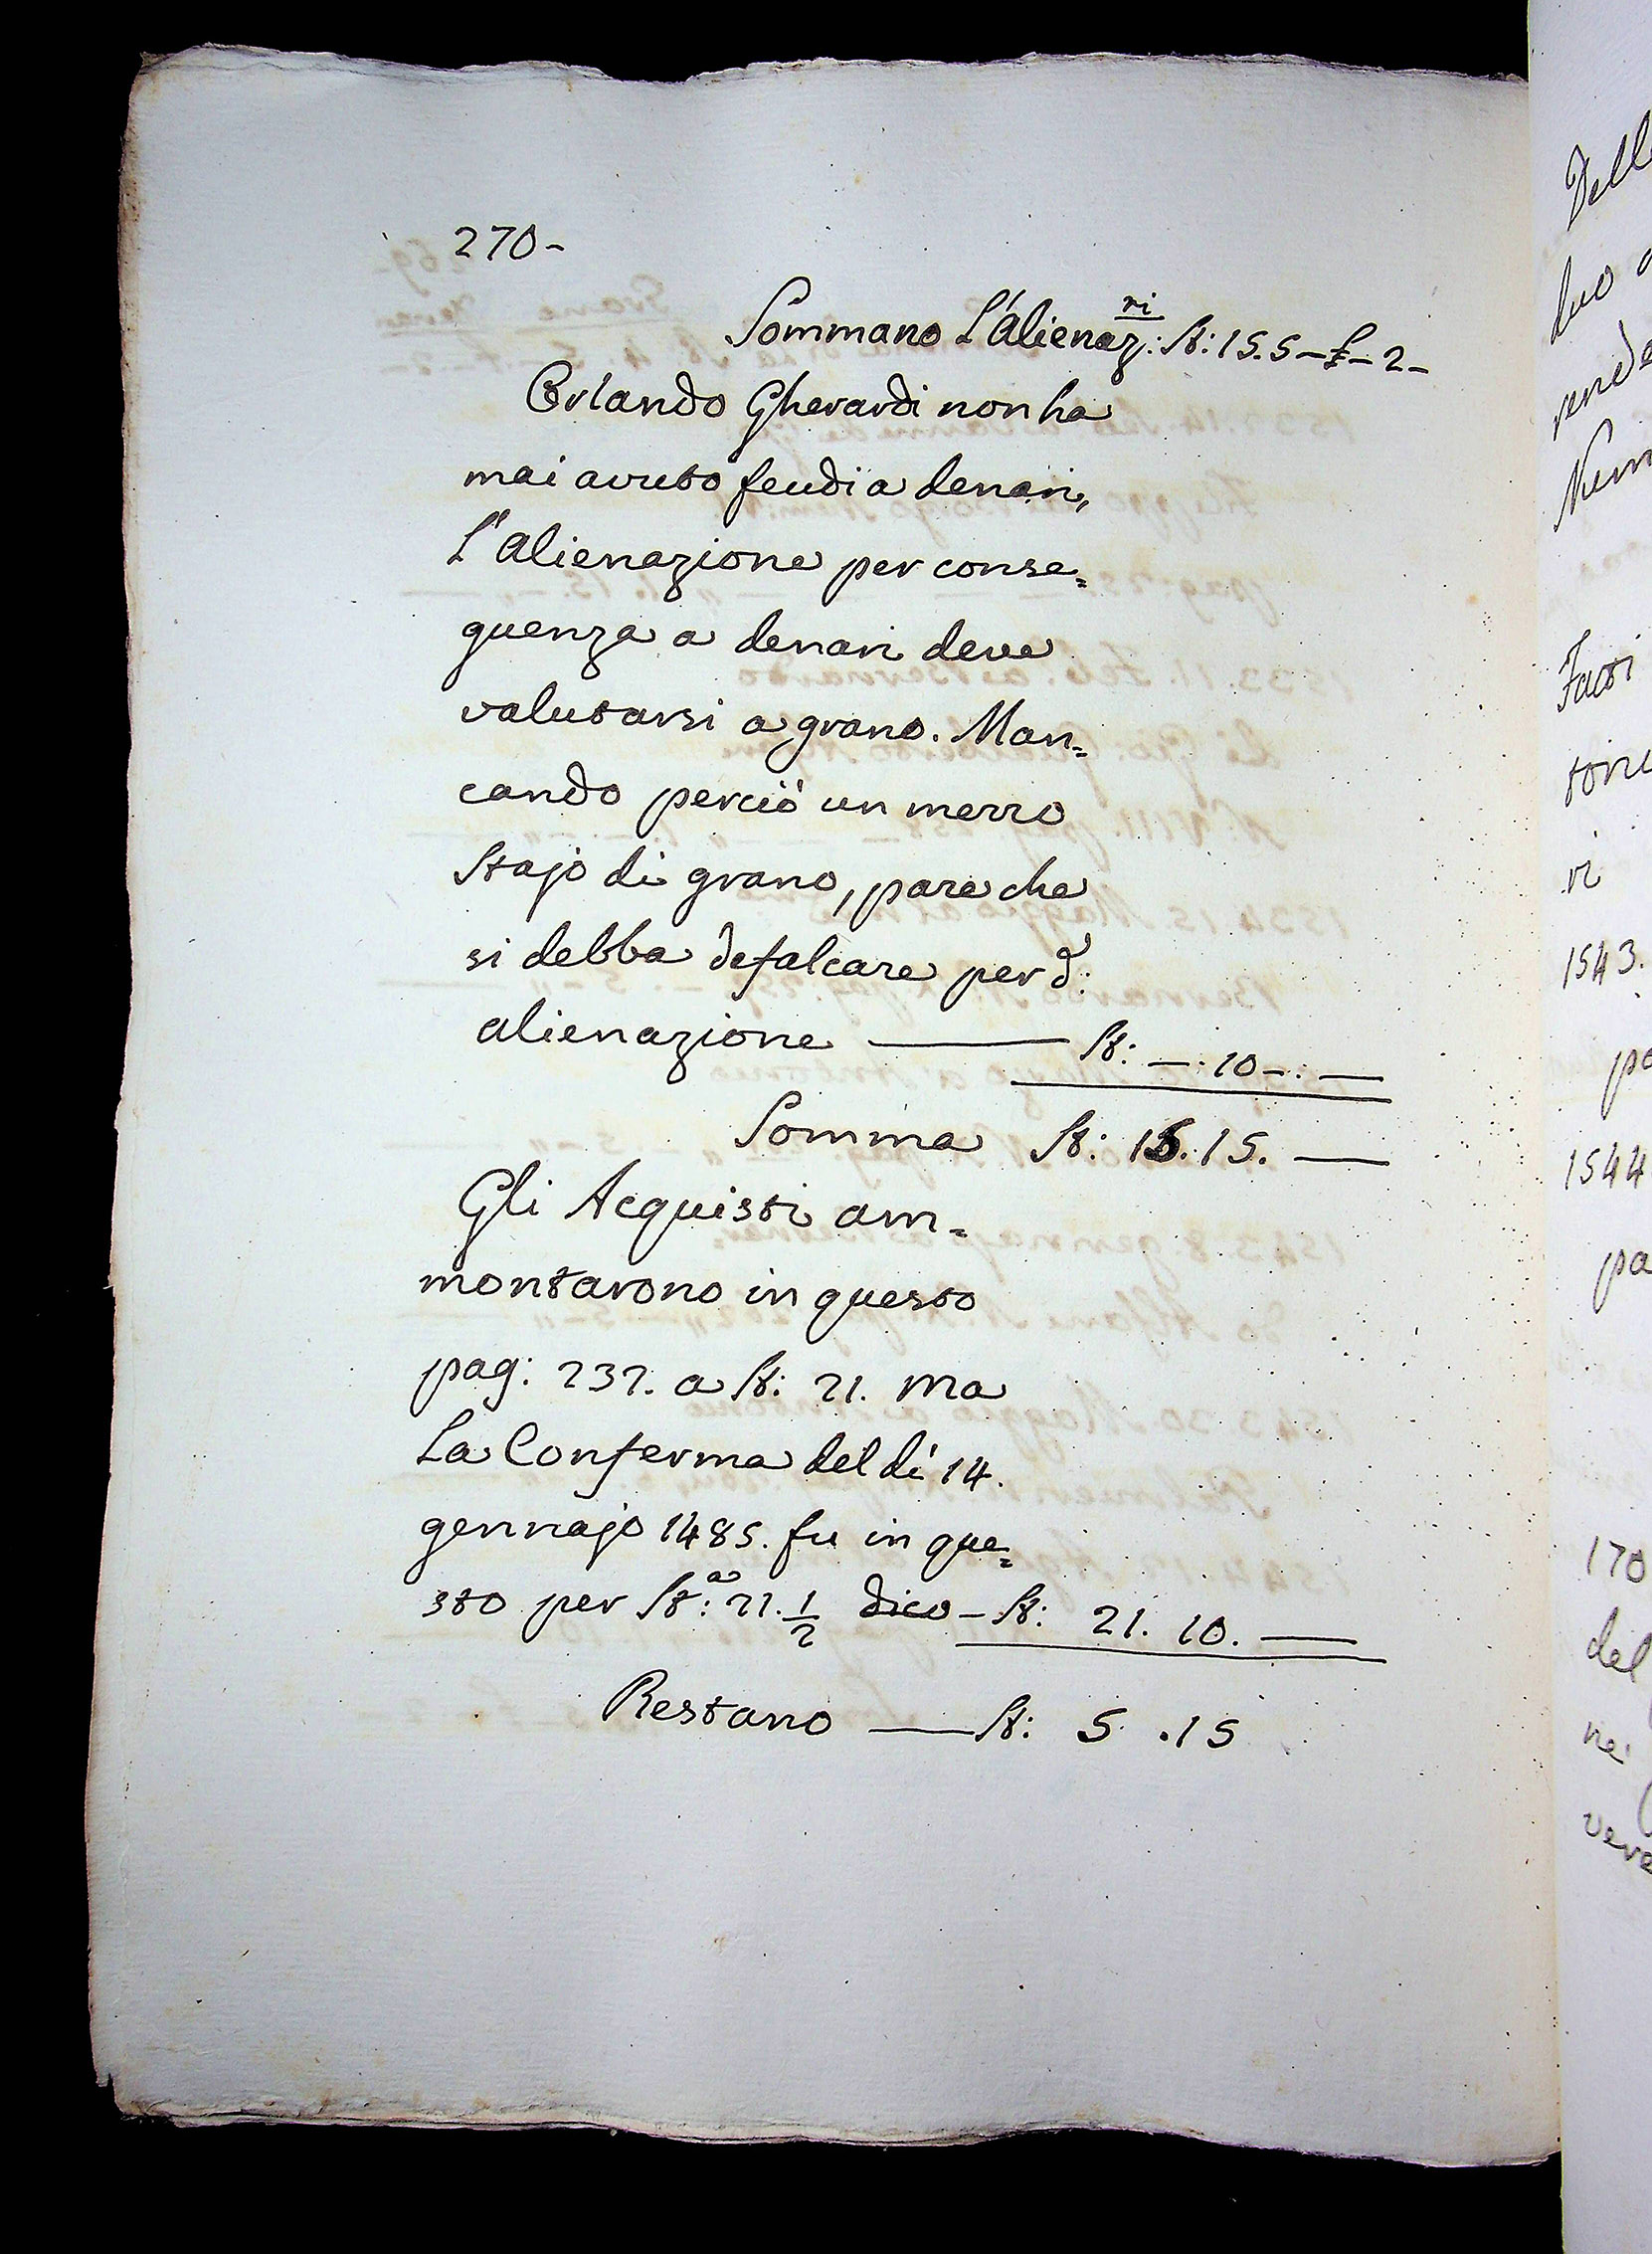 270-
Sommano L'Alienaz:ni St: 15.5 - £ - 2 -
Orlando Gherardi non ha
mai avuto feudi a denari,
L'Alienazione per conse=
guenza a denari deve
valutarsi a grano. Man=
cando perciò un mezzo
Stajo di grano, pare che
si debba defalcare per d:
alienazione —— St: -.10-. —
Somma St: 15.15. —
Gli Acquisti am=
montarono in questo
pag: 232. a St: 21. ma
La Conferma del dì 14.
gennajo 1485. fu in que=
sto per St:a 21. 1/2 dico - St: 21. 10. —
Restano —— St: 5 .15
Dell
vi
1543.
1544
pa
170
del